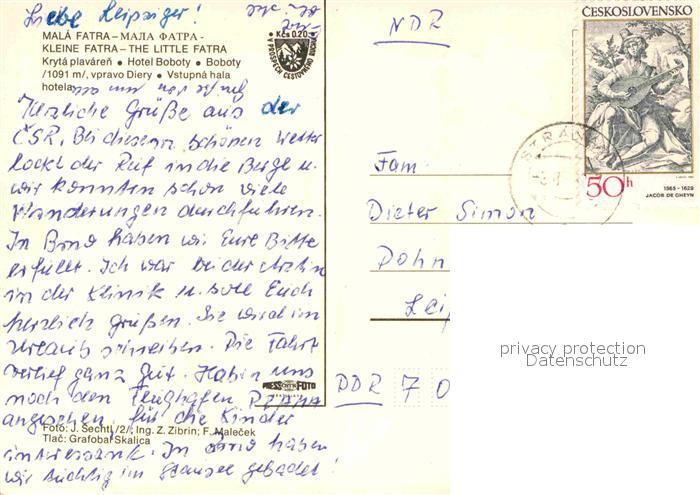 Liebe Leipziger!
MALÁ FATRA – МАЛА ФАТРА -
KLEINE FATRA – THE LITTLE FATRA
Krytá plaváreň • Hotel Boboty • Boboty
/1091 m/, vpravo Diery • Vstupná hala
hotela
Kčs 0.20
V PROSPECH CESTOVNÉHO RUCHU
Herzliche Grüße aus der
ČSR. Bei diesem schönen Wetter
lockt der Ruf in die Berge u.
wir konnten schon viele
Wanderungen durchführen.
In Brno haben wir Eure Bitte
erfüllt. Ich war bei der Ärztin
in der Klinik u. soll Euch
herzlich grüßen. Sie wird im
Urlaub schreiben. Die Fahrt
verlief ganz gut. Haben uns
noch den Flughafen PRAHA
angesehen, für die Kinder
interessant. In Brno haben
wir tüchtig im Stausee gebadet!
Foto: J. Šechtl /2/, Ing. Z. Zibrín; F. Maleček
Tlač: Grafobal Skalica
PRESSFOTO
NDR
ČESKOSLOVENSKO
50h
1565 - 1629
JACOB DE GHEYN
Fam.
Dieter Simon
Dohn
Leip
DDR 70
privacy protection
Datenschutz